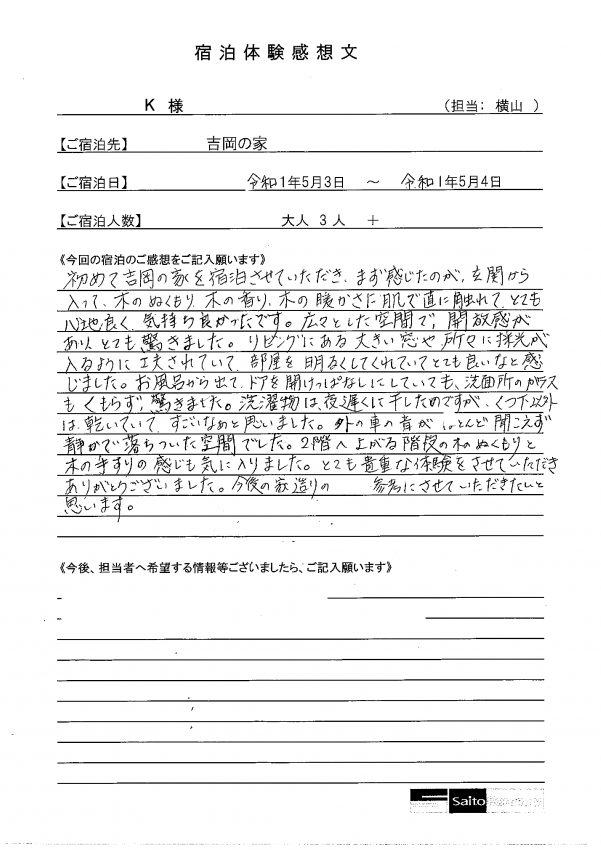 宿泊体験感想文
K 様 （担当; 横山 ）
【ご宿泊先】 吉岡の家
【ご宿泊日】 令和1年5月3日 ～ 令和1年5月4日
【ご宿泊人数】 大人 3人 ＋
《今回の宿泊のご感想をご記入願います》
初めて吉岡の家を宿泊させていただき、まず感じたのが、玄関から
入って、木のぬくもり、木の香り、木の暖かさに肌で直に触れて、とても
心地良く、気持ち良かったです。広々とした空間で、開放感が
あり、とても驚きました。リビングにある大きい窓や所々に採光が
入るように工夫されていて、部屋を明るくしてくれていてとても良いなと感
じました。お風呂から出て、ドアを開けっぱなしにしていても、洗面所のガラス
もくもらず、驚きました。洗濯物は、夜遅くに干したのですが、くつ下以外
は、乾いていて、すごいなぁと思いました。外の車の音がほとんど聞こえず
静かで落ちついた空間でした。2階へ上がる階段の木のぬくもりと
木の手すりの感じも気に入りました。とても貴重な体験をさせていただき
ありがとうございました。今後の家造りの 参考にさせていただきたいと
思います。
《今後、担当者へ希望する情報等ございましたら、ご記入願います》
Saito